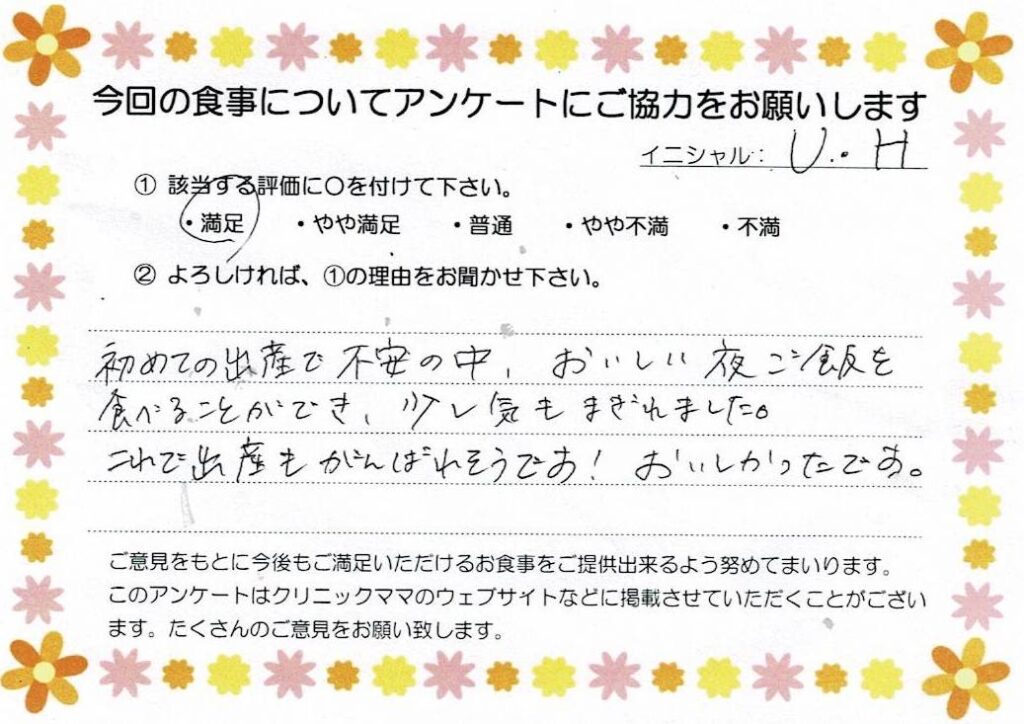 今回の食事についてアンケートにご協力をお願いします
イニシャル： U.H
① 該当する評価に〇を付けて下さい。
・満足 ・やや満足 ・普通 ・やや不満 ・不満
② よろしければ、①の理由をお聞かせ下さい。
初めての出産で不安の中、おいしい夜ご飯を
食べることができ、少し気もまぎれました。
これで出産もがんばれそうです！ おいしかったです。
ご意見をもとに今後もご満足いただけるお食事をご提供出来るよう努めてまいります。
このアンケートはクリニックママのウェブサイトなどに掲載させていただくことがござい
ます。たくさんのご意見をお願い致します。